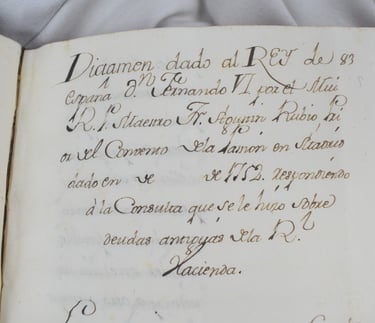 Dictamen dado al REY de 83
España dⁿ Fernando VI por el Mui
R. P. Maestro Fr. Agustin Rubio Pri
or del Convento de la Pasion en Madrid
dado en de de 1752. Respondiendo
à la Consulta que se le hizo sobre
deudas antiguas de la Rˡ
Hacienda.